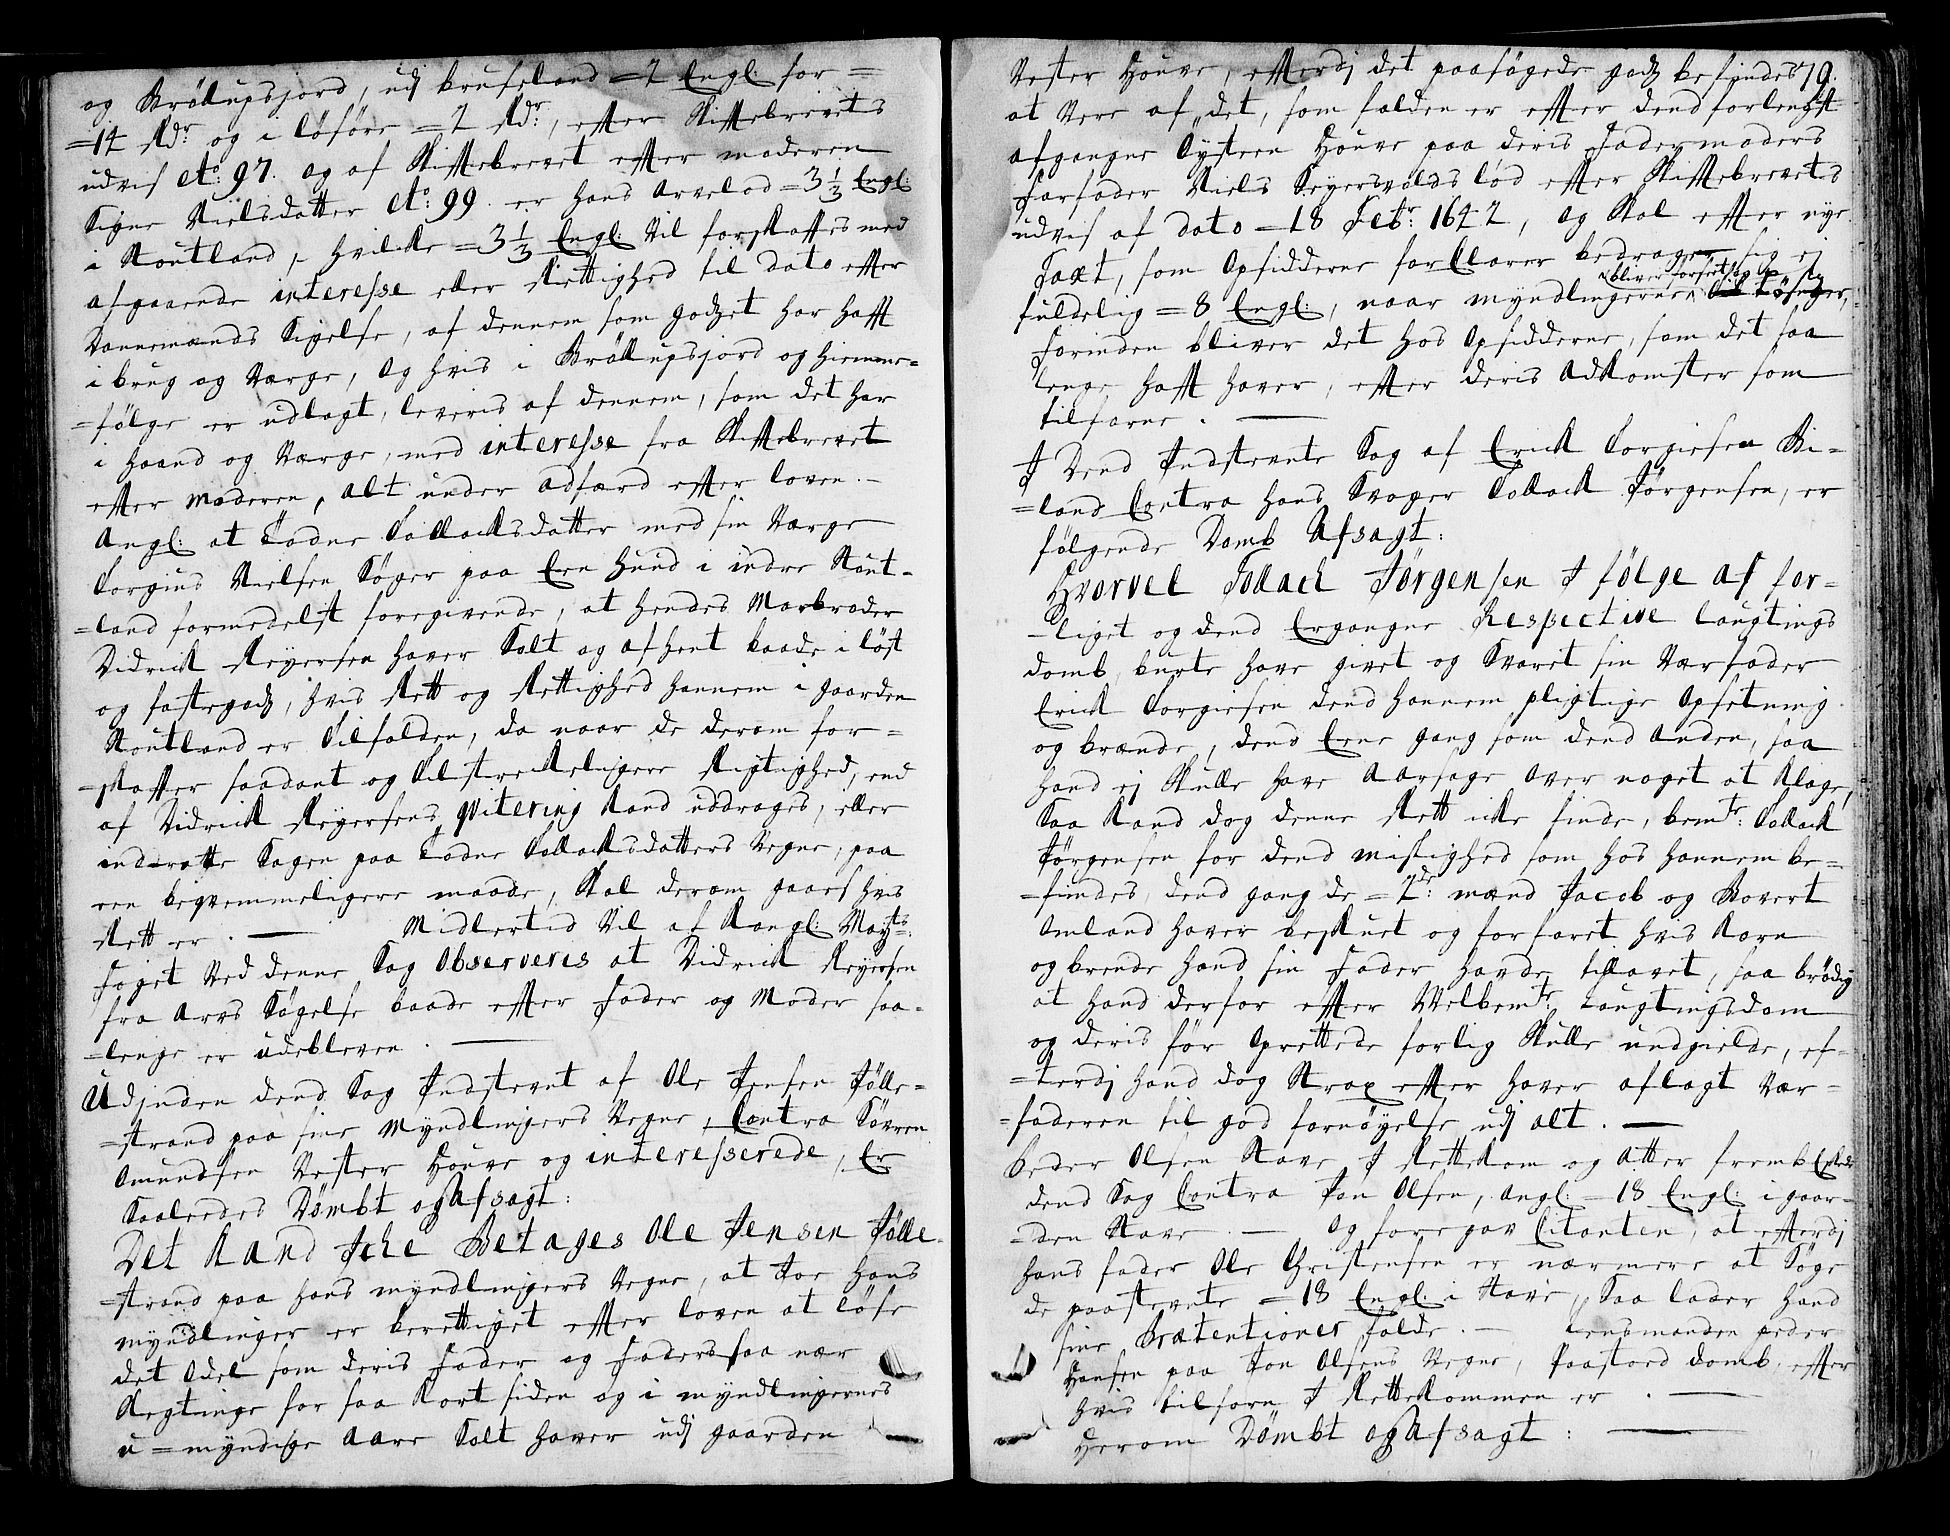 og Bröllupsjord, udj bruseland =2 Engl: for=
=14 Rdr og i löföre =2 Rdr:, efter Skiftebrevets
udvis Ao: 97. og af Skiftebrevet efter moderen
Signe Nielsdatter Ao: 99. er hans Arvelod =3 1/3 Engl:
i Stoutland, hvilke =3 1/3 Engl: Vil forskaffes med
afgaaende interesse eller Rettighed til dato efter
Dannemænds Sigelse, af dennem som godzet har haft
i brug og Værge, og hvis i Bröllupsjord og hiemme=
=fölge er udlagt, leveris af dennem, som det har
i haand og Værge, med interesse fra Skiftebrevet
efter Moderen, alt under adfærd efter loven.
Angl: at Todne Tollachsdatter med sin Værge
Torgius Nielsen Söger paa Een Hund i indre Stout=
=land formedelst foregivende, at hendes Morbroder
Didrick Reyersen haver Solt og afhent baade i löst
og fastegodz, hvis Rett og Rettighed hannem i gaarden
Stoutland er Tilfalden, da naar de derom for=
=skaffer saadant og tilstreckeligere Rigtighed, end
af Didrick Reyersens qvitering kand uddrages, eller
indrette Sagen paa Todne Tollachsdatters Vegne, paa
een beqvemmeligere maade, Skal derom gaaes hvis
Rett er. — Midlertid Vil af Kongl: Mayts:
Foget Ved denne Sag observeris at Didrick Reyersen
fra Arvs Sögelse baade efter Fader og Moder saa=
=lenge er udebleven. —
Udj‌nden dend Sag Indstevnt af Ole Jensen Jölle=
=strand paa sine Myndlingers Vegne, Contra Sövren
Omundsen Vester Houve og interesserede, Er
Saaledes Dömbt og Afsagt:
Det Kand Iche Betages Ole Jensen Jölle=
=strand paa hans myndlingers Vegne, at Joe hans
myndlinger er berettiget efter loven at löse
det Odel som deris Fader og Faders saa nær
Slegtinge for saa kort siden og i myndlingernes
u=myndige Aare Solt haver udj gaarden
Vester Houve, efterdj det paasögede godz befindes 79.
at Vere af det, som falden er efter dend forlengst
afgangne Öysteen Houve paa deris Fadermoders
Farfader Niels Seyersvolds lod efter Skiftebrevets
udvis af dato =18 Febr: 1642, og Skal efter nye
Taxt, som Opsidderne forklarer bedrage sig ej
fuldelig =8 Engl:, naar myndlingerne bliver forset og
forinden bliver det hos Opsidderne, som det saa
lenge haft haver, efter deris Adkomster som
tilforne. —
I Dend Indstevnte Sag af Erick Torgiesen Bi=
=land Contra hans Svoger Tollack Jörgensen, er
fölgende Domb Afsagt:
Hvorvel Tollach Jörgensen I fölge af for=
=liget og dend Ergangne Respective laugtings
domb burte have givet og Svaret sin Værfader
Erick Torgiesen dend hannem pligtige Opsetning
og brænde, dend Eene gang som dend anden, saa
hand ej Skulle have Aarsage over noget at klage,
Saa kand dog denne Rett icke finde, bemte: Tollack
Jörgensen for dend mistighed som hos hannem be=
=findes, dend gang de =2de: mænd Jacob og Bovert
Omland haver beskuet og forfaret hvis Korn
og brende hand sin Fader havde tillavet, saa brödig
at hand derfor efter Welbemte: Laugtingsdom
og deris för Oprettede forlig Skulle undgielde, ef=
=terdj hand dog Strax efter haver aflagt Vær=
=faderen til god fornöyelse udj alt. —
Peder Olsen Stave I Rettekom og atter fremb Eskede
dend Sag Contra Jon Olsen, angl: =18 Engl: i gaar=
=den Stave — Og foregav Citanten, at efterdj
hans fader Ole Christensen er nærmere at Söge
de paastevnte =18 Engl: i Stave, Saa lader hand
sine Prætentioner falde. — Lensmanden peder
Hansen paa Jon Olsens Vegne, Paastoed domb efter
hvis tilforn I Rettekommen er. —
Herom Dömbt og Afsagt: —